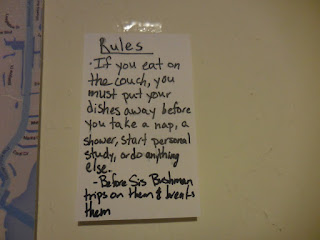 Rules
· If you eat on
the couch, you
must put your
dishes away before
you take a nap, a
shower, start personal
study, or do anything
else.
- Before Sis Bushman
trips on them & breaks
them